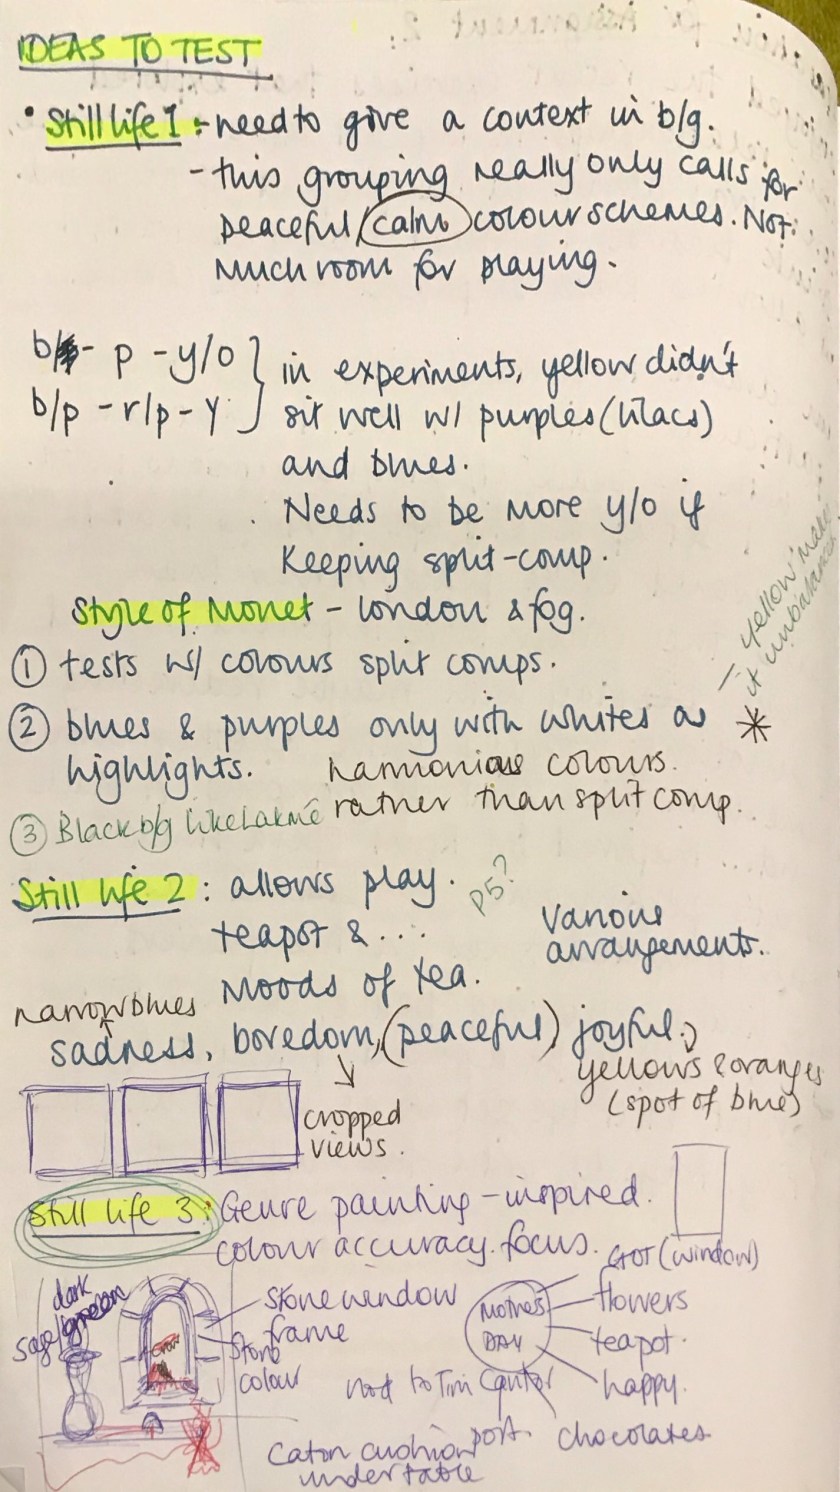 IDEAS TO TEST
• Still life 1 :- need to give a context in b/g.
- this grouping really only calls for
peaceful / calm colour schemes. Not
much room for playing.
b - p - y/o } in experiments, yellow didn't
b/p - r/p - y } sit well w/ purples (lilacs)
and blues.
Needs to be more y/o if
keeping split-comp.
Style of Monet - London & fog.
① tests w/ colours split comps.
② blues & purples only with whites as *
- yellow makes
it unbalanced
highlights. harmonious colours.
rather than split comp.
③ Black b/g like Lakmé
Still life 2 : allows play. P5?
teapot & ...
various
arrangements.
Moods of tea.
narrow blues
sadness, boredom, (peaceful) joyful.
yellows & oranges
(spot of blue)
cropped
views.
Still life 3 : Genre painting - inspired.
colour accuracy focus.
(window)
dark
sage/green
Stone window
frame
stone
colour
Mothers
DAY
flowers
teapot.
happy.
chocolates
port.
nod to Tim Cantor
Cat on cushion
under table